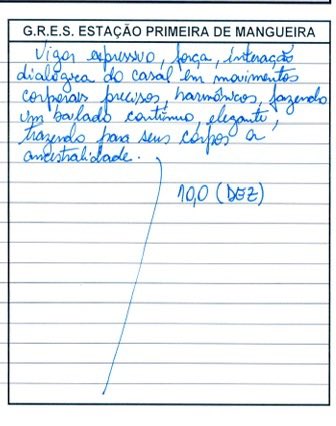 G.R.E.S. ESTAÇÃO PRIMEIRA DE MANGUEIRA
Vigor expressivo, força, interação
dialógica do casal em movimentos
corporais precisos, harmônicos, fazendo
um bailado contínuo, elegante,
trazendo para seus corpos a
ancestralidade.
10,0 (DEZ)